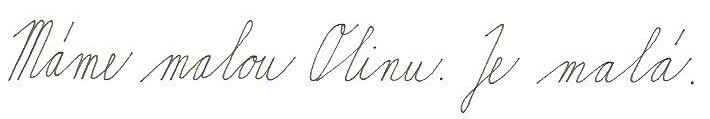 Máme malou Olinu. Je malá.